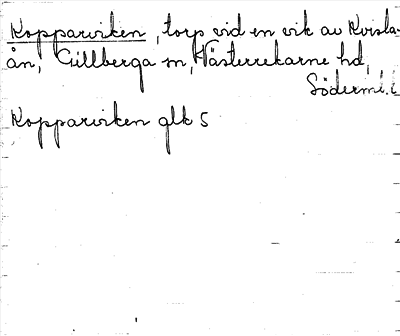 Kopparviken, torp vid en vik av Kvisla-
ån, Gillberga sn, Västerrekarne hd,
Söderml.
Kopparviken glk 5